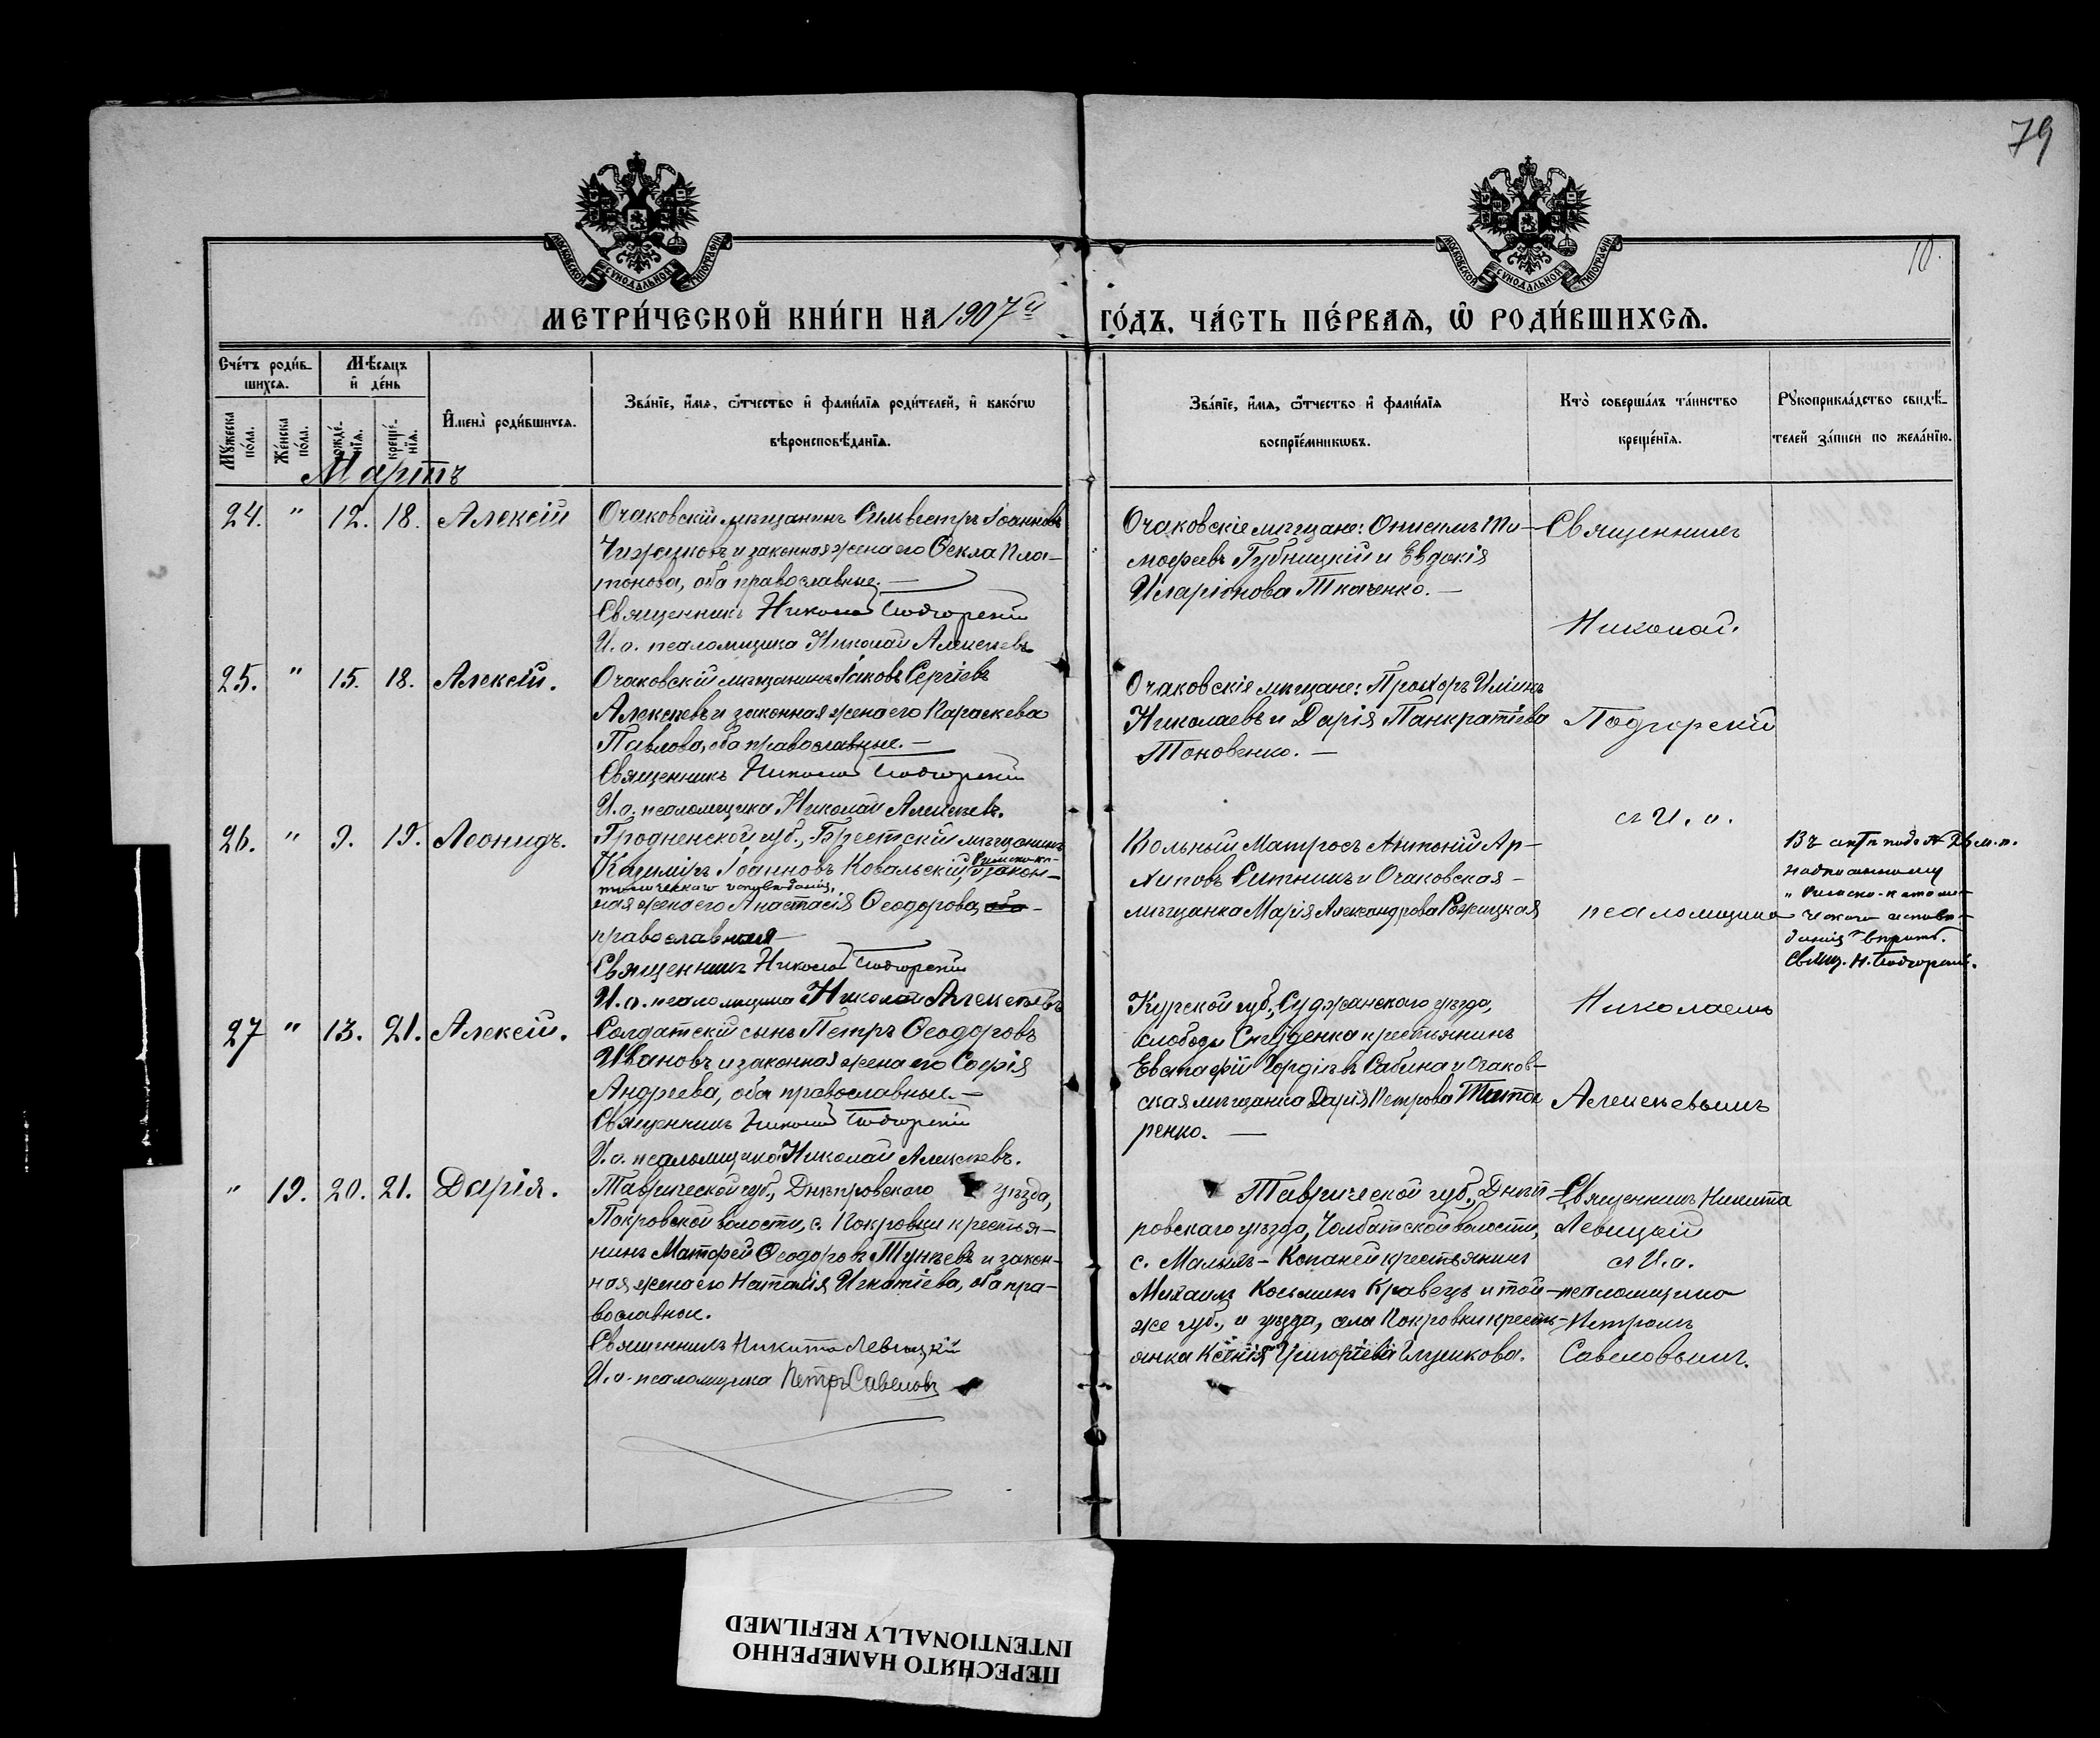 79
10.
МЕТРИ́ЧЕСКОЙ КНИ́ГИ НА 1907й ГО́ДЪ, ЧА́СТЬ ПЕ́РВАѦ, Ѽ РОДИ́ВШИХСѦ.
Сче́тъ роди́в-
шихсѧ.
Му́жеска по́ла.
Же́нска по́ла.
Мѣ́сѧцъ и де́нь
рожде́-нїѧ.
креще́-нїѧ.
Имена̀ роди́вшихсѧ.
Зва́нїе, и́мѧ, ѻ҆́тчество и фами́лїѧ роди́телей, и како́гѡ
вѣроисповѣ́данїѧ.
Зва́нїе, и́мѧ, ѻ҆́тчество и фами́лїѧ
воспрїе́мникѡвъ.
Кто̀ соверша́лъ та́инство
креще́нїѧ.
Рꙋкоприкла́дство свидѣ́-
телей за́писи по жела́нїю.
Мартъ
24. " 12. 18. Алексій
Очаковскій мѣщанинъ Сильвестръ Іоанновъ
Чижиковъ и законная жена его Ѳекла Пла-
тонова, оба православные.—
Священникъ Николай Подгорскій
И. о. псаломщика Николай Алексѣевъ
Очаковскіе мѣщане: Онисимъ Ти-
моѳеевъ Губницкій и Евдокія
Иларіонова Ткаченко.—
Священникъ
Николай.
25. " 15. 18. Алексій.
Очаковскій мѣщанинъ Іаковъ Сергіевъ
Алексѣевъ и законная жена его Параскева
Павлова, оба православные.—
Священникъ Николай Подгорскій
И. о. псаломщика Николай Алексѣевъ.
Очаковскіе мѣщане: Прохоръ Илiинъ
Николаевъ и Дарія Панкратіева
Тоновенко.—
Подгорскій
съ И. о.
26. " 9. 19. Леонидъ.
Гродненской губ., Брестскій мѣщанинъ
Казимiръ Іоанновъ Ковальскій, римско-ка-
толическаго исповѣданія, и закон-
ная жена его Анастасія Ѳеодорова, оба
православная
Священникъ Николай Подгорскій
И. о. псаломщика Николай Алексѣевъ
Вольный Матросъ Антоній Ар-
хиповъ Ситникъ и Очаковская
мѣщанка Марія Александрова Рожицкая
псаломщика
Николаемъ
Въ актѣ подъ № 26 м. п.
надписанному
"римско-католи-
ческаго исповѣ-
данія" вѣрить.
Свящ. Н. Подгорскій.
27 " 13. 21. Алексій.
Солдатскій сынъ Петръ Ѳеодоровъ
Ивановъ и законная жена его Софія
Андреева, оба православные.—
Священникъ Николай Подгорскій
И. о. псаломщика Николай Алексѣевъ.
Курской губ., Суджанскаго уѣзда,
слободы крестьянинъ
Евстафій Гордіевъ Сабина и Очаков-
ская мѣщанка Дарія Петрова Тита-
ренко.—
Алексѣевымъ
" 19. 20. 21. Дарія.
Таврической губ., Днѣпровскаго уѣзда,
Покровской волости, с. Покровки крестья-
нинъ Матѳей Ѳеодоровъ Тунѣевъ и закон-
ная жена его Наталія Игнатіева, оба пра-
вославные.
Священникъ Никита Левицкій
И. о. псаломщика Петръ Савеловъ
Таврической губ., Днѣп-
ровскаго уѣзда, Чолбасской волости,
с. Малыхъ-Копаней крестьянинъ
Михаилъ Косьминъ Кравецъ и той-
же губ., и уѣзда, села Покровки кресть-
янка Ксенія Григоріева Глушкова.
Священникъ Никита
Левицкій
съ И. о.
псаломщика
Петромъ
Савеловымъ.
ПЕРЕСНЯТО НАМЕРЕННО
INTENTIONALLY REFILMED